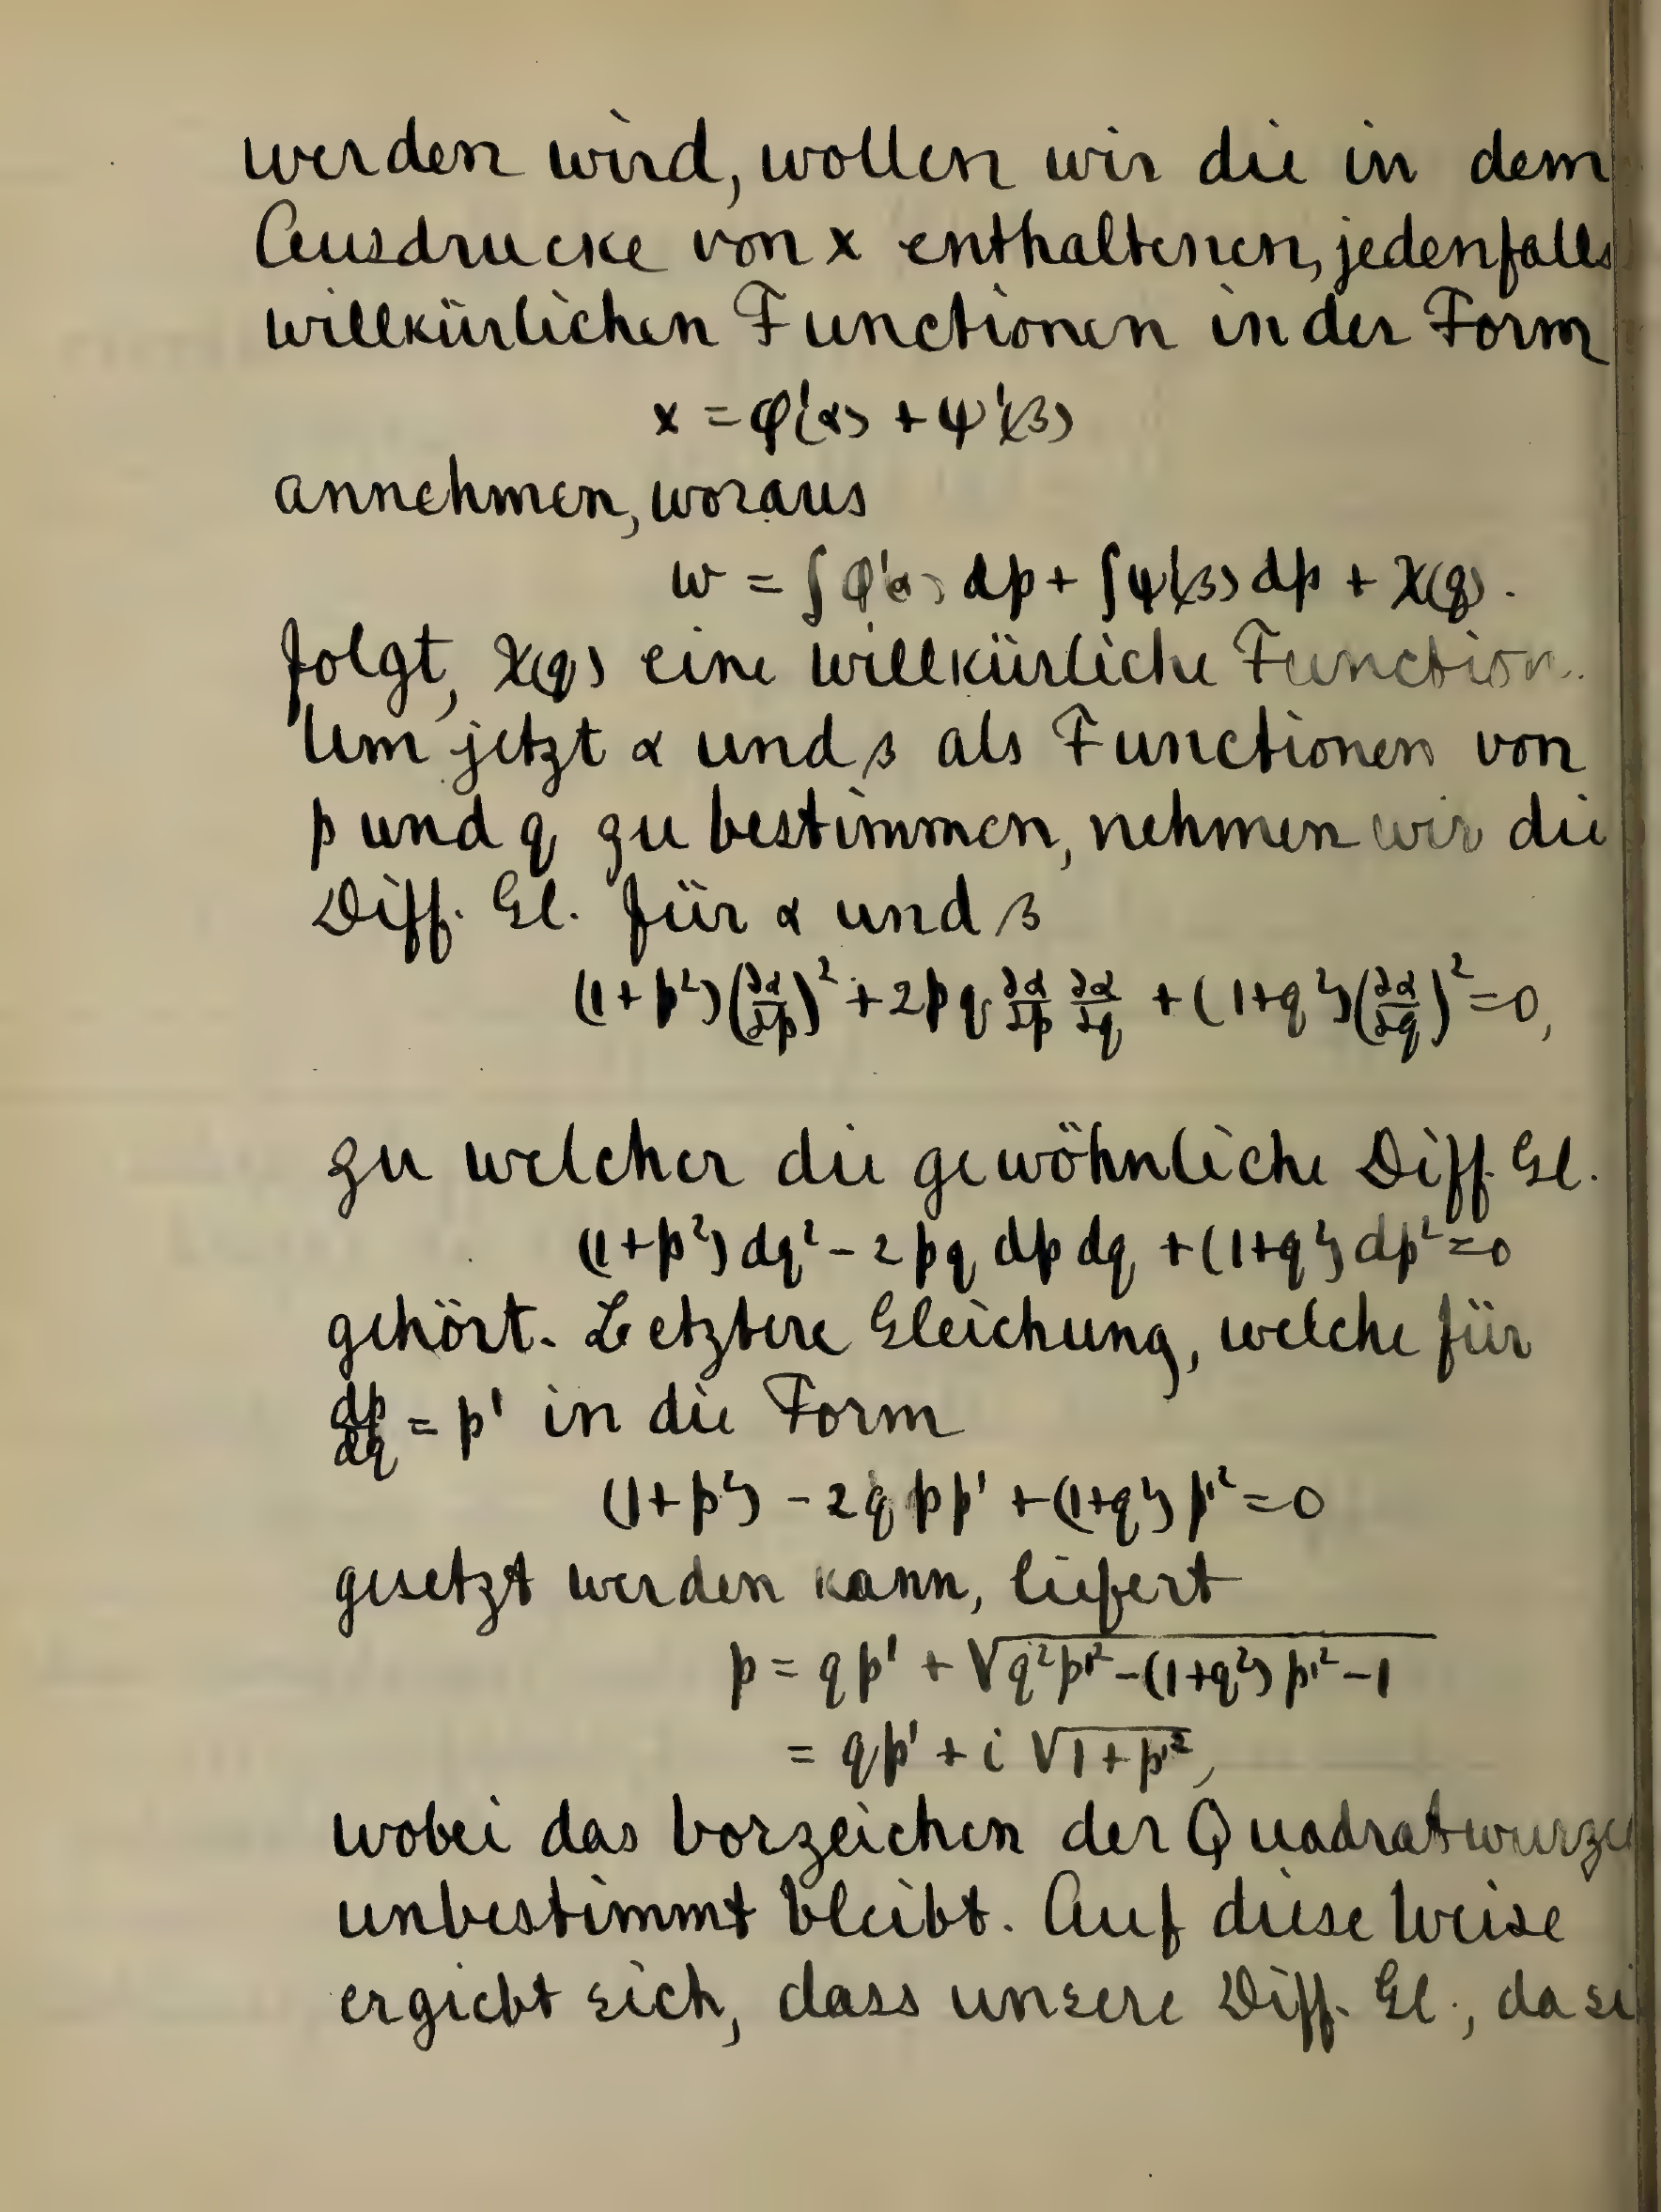 werden wird, wollen wir die in dem
Ausdrucke von x enthaltenen, jedenfalls
willkürlichen Functionen in der Form
x = φ'(α) + ψ'(β)
annehmen, woraus
w = ∫φ'(α) dp + ∫ψ'(β) dp + χ(q).
folgt, χ(q) eine willkürliche Function.
Um jetzt α und β als Functionen von
p und q zu bestimmen, nehmen wir die
Diff. Gl. für α und β
(1+p²)(∂α/∂p)² + 2pq ∂α/∂p ∂α/∂q + (1+q²)(∂α/∂q)² = 0,
zu welcher die gewöhnliche Diff. Gl.
(1+p²) dq² - 2pq dp dq + (1+q²) dp² = 0
gehört. Letztere Gleichung, welche für
dp/dq = p' in die Form
(1+p²) - 2q p p' + (1+q²) p'² = 0
gesetzt werden kann, liefert
p = q p' + √(q²p'² - (1+q²) p'² - 1)
= q p' + i √(1 + p'²),
wobei das Vorzeichen der Quadratwurze
unbestimmt bleibt. Auf diese Weise
ergiebt sich, dass unsere Diff. Gl., da si